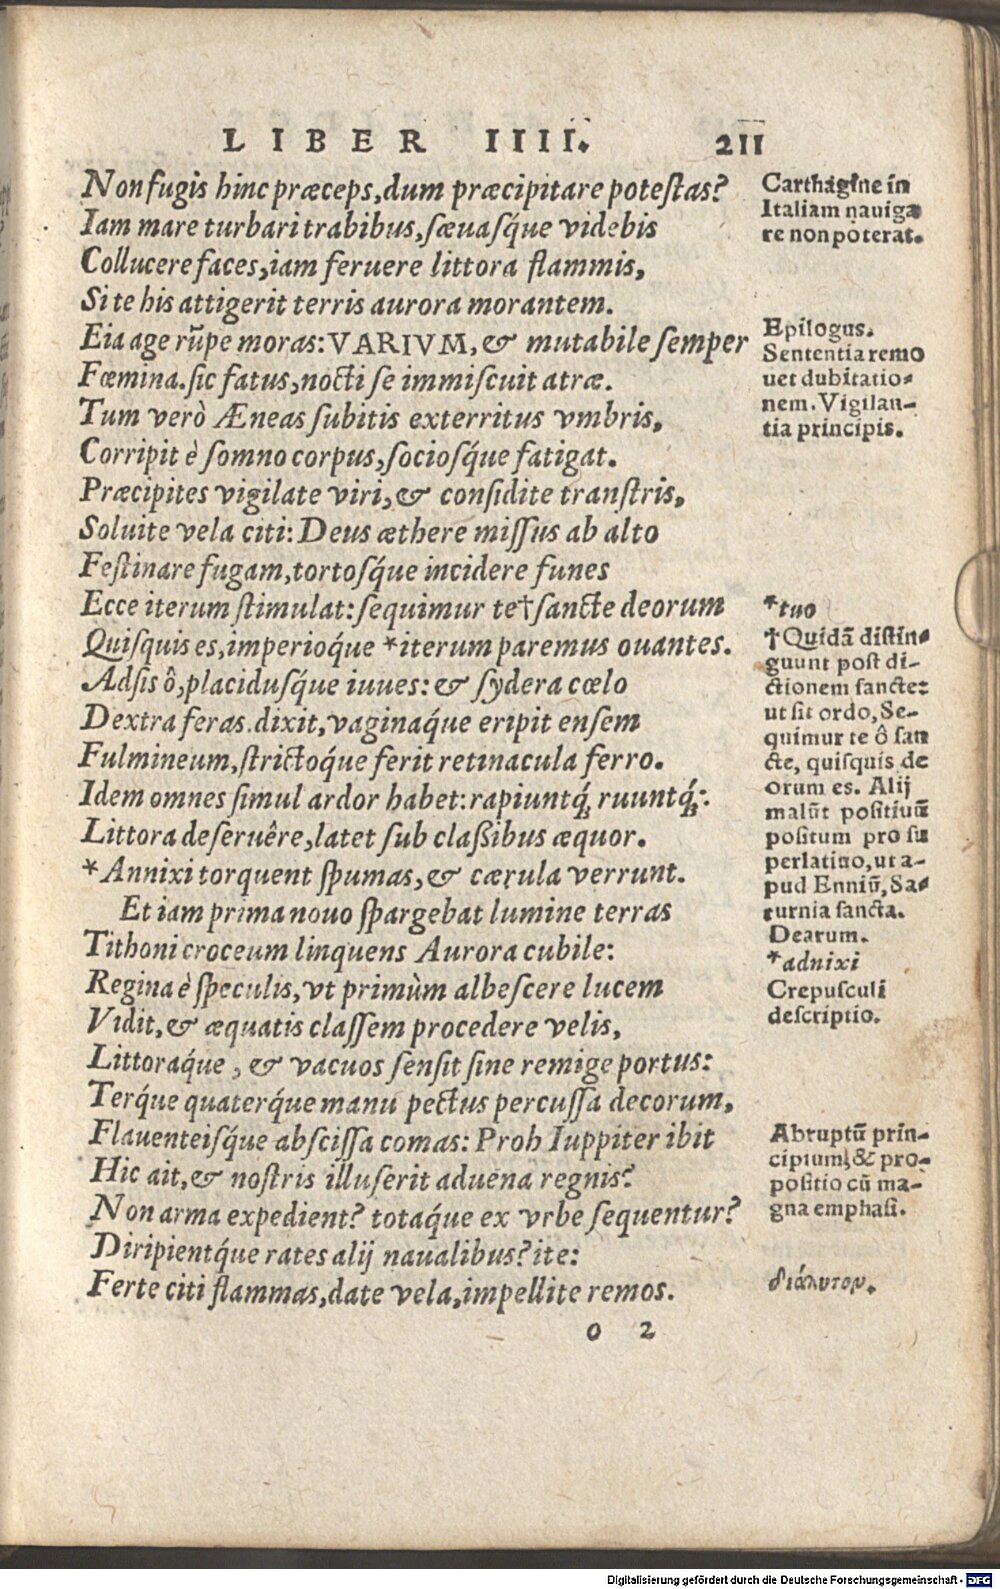 LIBER IIII. 211
Non fugis hinc præceps, dum præcipitare poteſtas?
Iam mare turbari trabibus, ſæuasq́ue videbis
Collucere faces, iam feruere littora flammis,
Si te his attigerit terris aurora morantem.
Eia age rūpe moras: VARIVM, & mutabile ſemper
Fœmina. ſic fatus, nocti ſe immiſcuit atræ.
Tum verò Æneas ſubitis exterritus vmbris,
Corripit è ſomno corpus, ſocioſq́ue fatigat.
Præcipites vigilate viri, & conſidite tranſtris,
Soluite vela citi: Deus æthere miſſus ab alto
Feſtinare fugam, tortoſq́ue incidere funes
Ecce iterum ſtimulat: ſequimur te† ſancte deorum
Quiſquis es, imperioq́ue *iterum paremus ouantes.
Adſis ô, placiduſq́ue iuues: & ſydera cœlo
Dextra feras. dixit, vaginaq́ue eripit enſem
Fulmineum, ſtrictoq́ue ferit retinacula ferro.
Idem omnes ſimul ardor habet: rapiuntq́; ruuntq́;:
Littora deſeruêre, latet ſub claßibus æquor.
*Annixi torquent ſpumas, & cærula verrunt.
Et iam prima nouo ſpargebat lumine terras
Tithoni croceum linquens Aurora cubile:
Regina è ſpeculis, vt primùm albeſcere lucem
Vidit, & æquatis claſſem procedere velis,
Littoraq́ue, & vacuos ſenſit ſine remige portus:
Terq́ue quaterq́ue manu pectus percuſſa decorum,
Flauenteiſq́ue abſciſſa comas: Proh Iuppiter ibit
Hic ait, & noſtris illuſerit aduena regnis?
Non arma expedient? totaq́ue ex vrbe ſequentur?
Diripientq́ue rates alij naualibus? ite:
Ferte citi flammas, date vela, impellite remos.
o 2
Carthagine in
Italiam nauiga
re non poterat.
Epilogus.
Sententia remo
uet dubitatio=
nem. Vigilan-
tia principis.
*tuo
†Quidã diſtin=
guunt poſt di-
ctionem ſancte:
ut ſit ordo, Se-
quimur te ô ſan
cte, quiſquis de
orum es. Alij
malũt poſitiuũ
poſitum pro ſu
perlatiuo, ut a-
pud Enniũ, Sa=
turnia ſancta.
Dearum.
*adnixi
Crepuſculi
deſcriptio.
Abruptũ prin-
cipium, & pro-
poſitio cũ ma-
gna emphaſi.
διάλυτον.
Digitalisierung gefördert durch die Deutsche Forschungsgemeinschaft - DFG